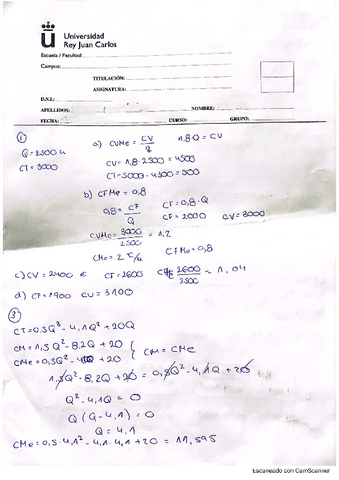 Universidad
Rey Juan Carlos
Escuela / Facultad:
Campus:
TITULACIÓN:
ASIGNATURA:
D.N.I.:
APELLIDOS: NOMBRE:
FECHA: CURSO: GRUPO:
① a) CVMe = CV/q 1,8·Q = CV
Q = 2500 u
CV = 1,8·2500 = 4500
CT = 5000
CT = 5000 - 4500 = 500
b) CFMe = 0,8
0,8 = CF/Q CF = 0,8·Q
CF = 2000 CV = 3000
CVMe = 3000/2500 = 1,2
CMe = 2 €/u CFMe = 0,8
c) CV = 2400 € CT = 2600 2600/2500 = 1,04
d) CF = 1900 CV = 3100
③
CT = 0,5Q³ - 4,1Q² + 20Q
CM = 1,5Q² - 8,2Q + 20
CMe = 0,5Q² - 4,1Q + 20 } CM = CMe
1,5Q² - 8,2Q + 20 = 0,5Q² - 4,1Q + 20
Q² - 4,1Q = 0
Q (Q - 4,1) = 0
Q = 4,1
CMe = 0,5·4,1² - 4,1·4,1 + 20 = 11,595
Escaneado con CamScanner